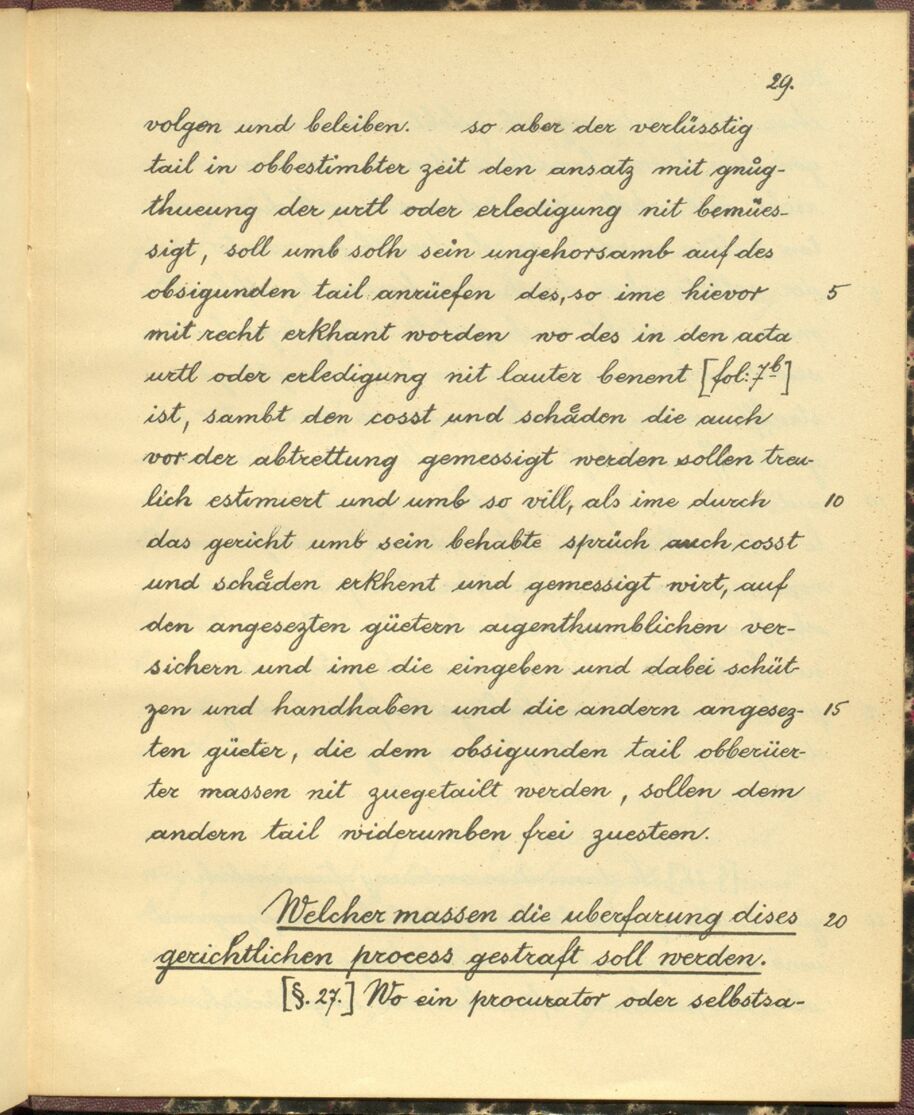 29.
volgen und beleiben. so aber der verlüsstig
tail in obbestimbter zeit den ansatz mit gnůg-
thueung der urtl oder erledigung nit bemües-
sigt, soll umb solh sein ungehorsamb auf des
obsigunden tail anrüefen des, so ime hievor 5
mit recht erkhant worden wo des in den acta
urtl oder erledigung nit lauter benent [fol: 7b]
ist, sambt den cosst und schåden die auch
vor der abtrettung gemessigt werden sollen treu-
lich estimiert und umb so vill, als ime durch 10
das gericht umb sein behabte sprüch auch cosst
und schåden erkhent und gemessigt wirt, auf
den angesezten güetern aigenthumblichen ver-
sichern und ime die eingeben und dabei schüt-
zen und handhaben und die andern angesez- 15
ten güeter, die dem obsigunden tail obberüer-
ter massen nit zuegetailt werden, sollen dem
andern tail widerumben frei zuesteen.
Welcher massen die uberfarung dises 20
gerichtlichen process gestraft soll werden.
[§. 27.] Wo ein procurator oder selbstsa-